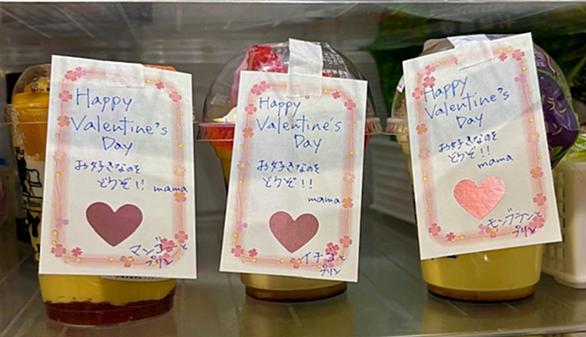 Happy
Valentine's
Day
お好きなのを
どうぞ!!
mama
マンゴーと
プリン
Happy
Valentine's
Day
お好きなのを
どうぞ!!
mama
イチゴと
プリン
Happy
Valentine's
Day
お好きなのを
どうぞ!!
mama
モンブランと
プリン